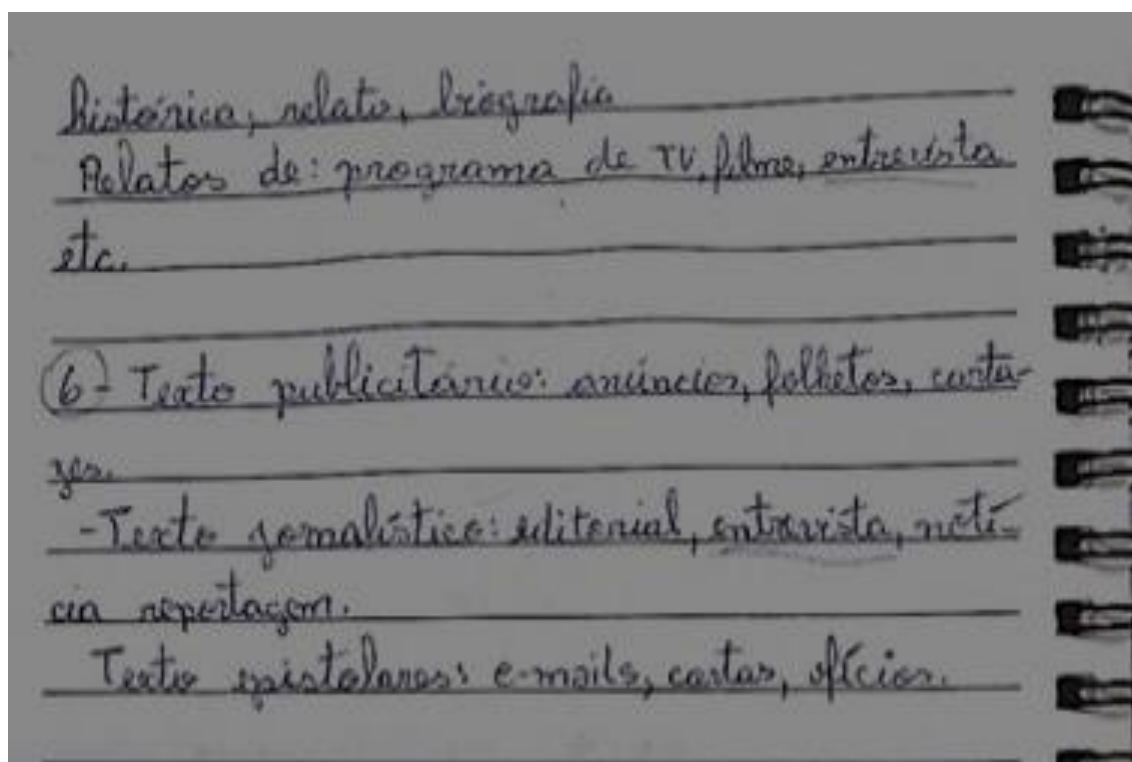 histórica, relato, biografia
Relatos de: programa de TV, filme, entrevista
etc.
6- Texto publicitário: anúncios, folhetos, carta-
zes.
-Texto jornalístico: editorial, entrevista, notí-
cia reportagem.
Texto epistolares: e-mails, cartas, ofícios.